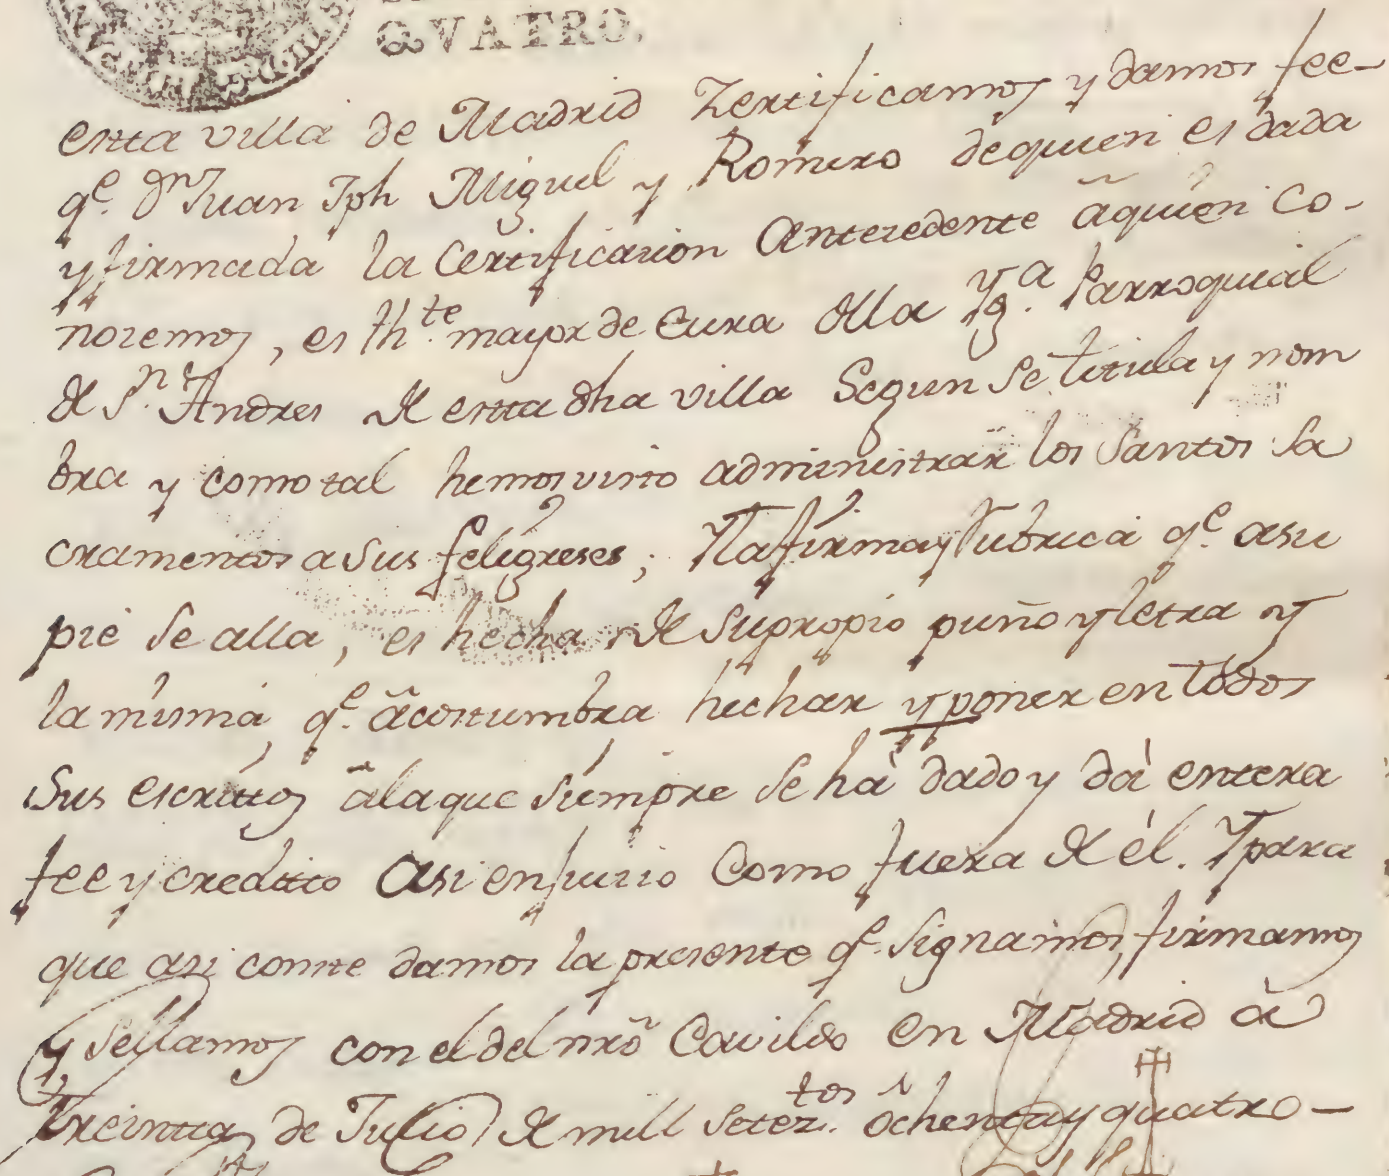 QVATRO.
esta villa de Madrid Zertificamos y damos fee-
qe. Dn Juan Jph Miguel y Romero dequien es dada
y firmada la Certificazion Antezedente âquien Co-
nozemos, es Thte. mayor de Cura dlla Yga. Parroquial
de Sn. Andres de esta dha villa Segun se titula y nom
bra y como tal hemos visto administrar los Santos Sa
cramentos a sus feligreses; Y la firma y Rubrica qe. asu
pie se alla, es hecha de supropio puño y letra y
la misma qe. âcostumbra hechar y poner en todos
Sus escritos âlaque siempre se hà dado y dà entera
fee y credito Asi en juizio Como fuera de èl. Y para
que asi conste damos la presente qe. signamos, firmamos
y sellamos con el del nrõ Cavildo en Madrid à
treinta de Julio de mill Seteztos. ôchenta y quatro-